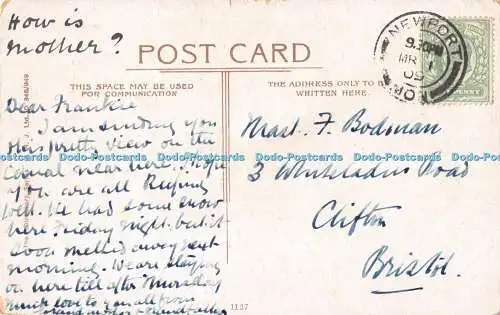 How is
mother?
POST CARD
THIS SPACE MAY BE USED
FOR COMMUNICATION
THE ADDRESS ONLY TO BE
WRITTEN HERE.
NEWPORT
9.30PM
MR 1
09
MON
PENNY
Dear Frankie
I am sending you
this pretty view on the
canal near here. I hope
you are all keeping
well. We had some snow
here Friday night, but it
soon melted away next
morning. We are staying
on here till after Thursday
much love to you all from
Grandmother & Grandfather
Mast. F. Bodman
3 Whiteladies Road
Clifton
Bristol.
1127
Dodo-Postcards Dodo-Postcards Dodo-Postcards Dodo-Postcards Dodo-Postcards